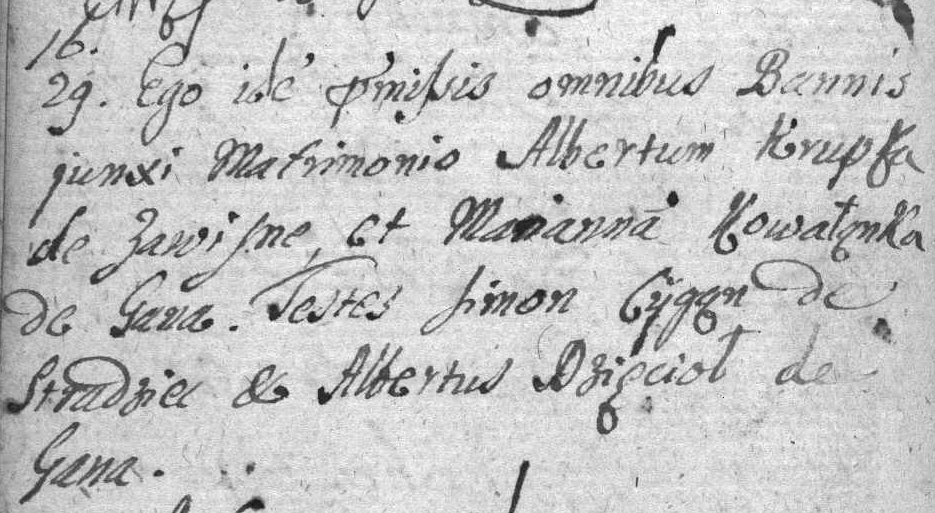 16.
29. Ego idē p̄missis omnibus Bannis
junxi Matrimonio Albertum Krupka
de Zawisne, et Mariannā Kowaląnka
de Gana. Testes Simon Cÿgąn de
Stradziec & Albertus Dzięcioł de
Gana.